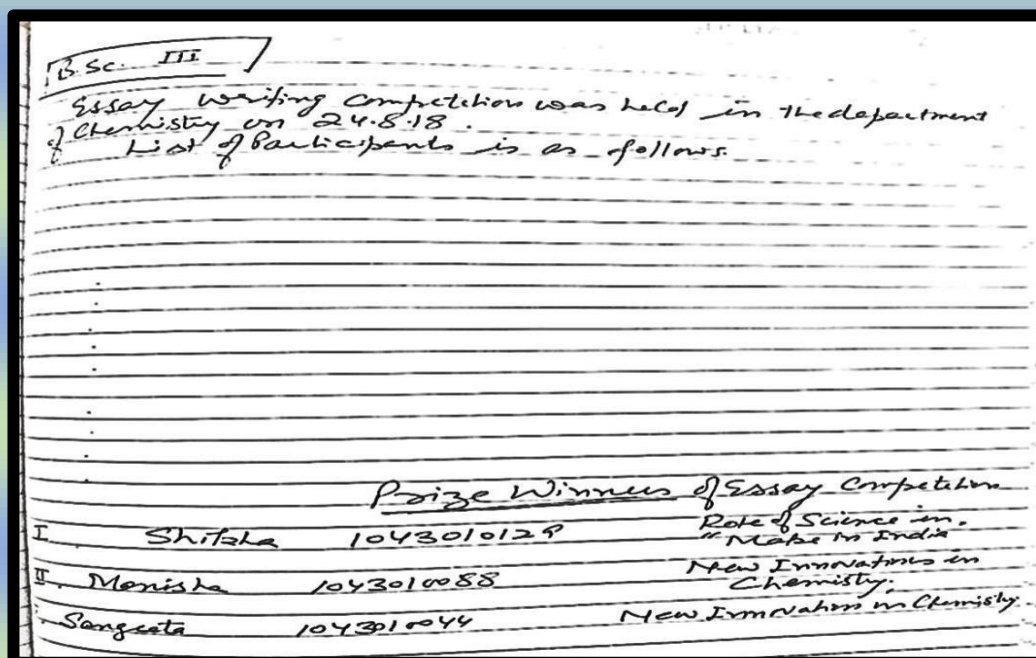 B.Sc. III
Essay Writing Competition was held in the department
of Chemistry on 24.8.18.
List of Participants is as follows.
Prize Winners of Essay Competition
I Shikha 1043010129 Role of Science in "Make in India
II. Manisha 1043010088 New Innovations in Chemistry.
Sangeeta 1043010044 New Innovation in Chemistry.